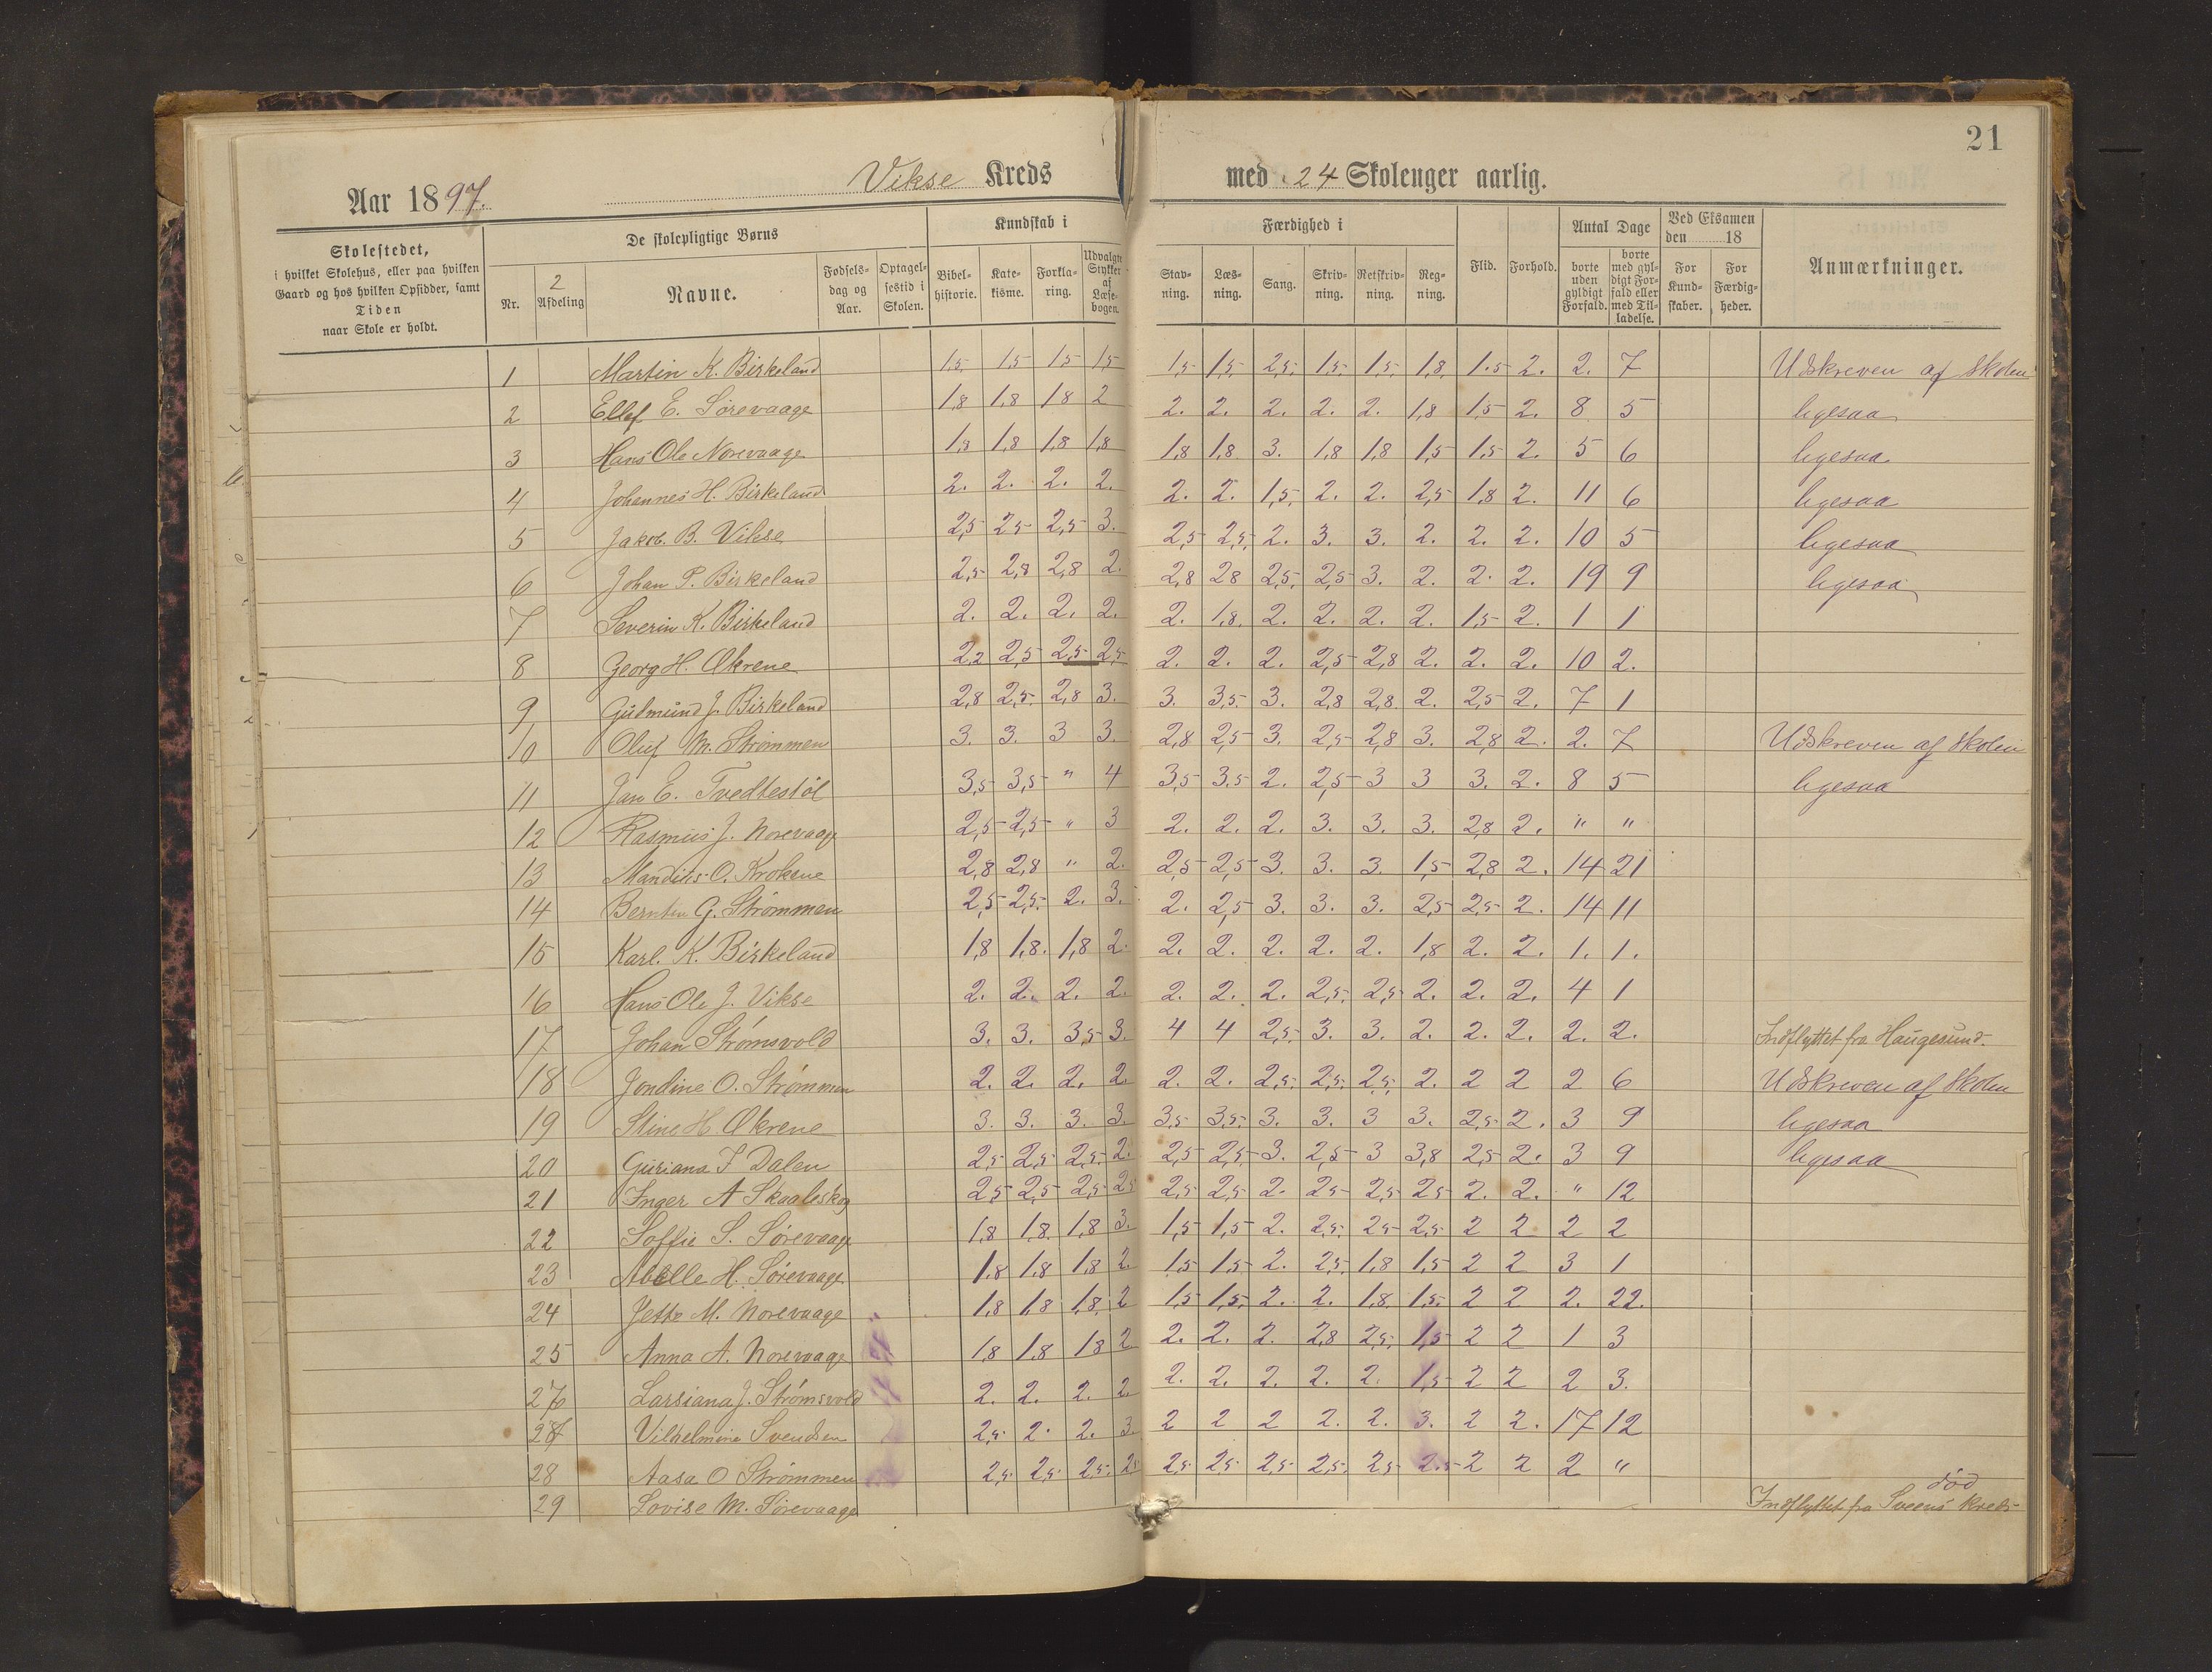 21
Aar 1897. Vikse Kreds med 24 Skoleuger aarlig.
Skolestedet, i hvilket Skolehus, eller paa hvilken Gaard og hos hvilken Opsidder, samt Tiden naar Skole er holdt.
De skolepligtige Børns
Nr. 2 Afdeling Navne. Fødselsdag og Aar. Optagelsestid i Skolen.
Kundskab i
Bibelhistorie. Katekisme. Forklaring. Udvalgte Stykker af Læsebogen.
Færdighed i
Stavning. Læsning. Sang. Skrivning. Retskrivning. Regning.
Flid. Forhold.
Antal Dage
borte uden gyldigt Forfald. borte med gyldigt Forfald eller med Tilladelse.
Ved Eksamen den 18
For Kundskaber. For Færdigheder.
Anmærkninger.
1 Martin K. Birkeland 1,5 1,5 1,5 1,5 1,5 1,5 2,5 1,5 1,5 1,8 1.5 2. 2. 7 Udskreven af Skolen
2 Ellef E. Sørevaage 1,8 1,8 1,8 2 2. 2. 2. 2. 2. 1,8 1,5 2. 8 5 ligesaa
3 Hans Ole Norevaage 1,8 1,8 1,8 1,8 1,8 1,8 3. 1,8 1,8 1,5 1,5 2. 5 6 ligesaa
4 Johannes H. Birkeland 2. 2. 2. 2. 2. 2. 1,5 2. 2. 2,5 1,8 2. 11 6 ligesaa
5 Jakob. B. Vikse 2,5 2,5 2,5 3. 2,5 2,5 2. 3. 3. 2. 2. 2. 10 5 ligesaa
6 Johan P. Birkeland 2,5 2,8 2,8 2. 2,8 2,8 2,5 2,5 3. 2. 2. 2. 19 9 ligesaa
7 Severin K. Birkeland 2. 2. 2. 2. 2. 1,8. 2. 2. 2. 2. 1,5 2. 1 1
8 Georg H. Økrene 2,2 2,5 2,5 2,5 2. 2. 2. 2,5 2,8 2. 2. 2. 10 2.
9 Gudmund J. Birkeland 2,8 2,5 2,8 3. 3. 3,5 3. 2,8 2,8 2. 2,5 2. 7 1
10 Oluf M. Strømmen 3. 3. 3 3. 2,8 2,5 3. 2,5 2,8 3. 2,8 2. 2. 7 Udskreven af Skolen
11 Jan E. Tvedtestøl 3,5 3,5 " 4 3,5 3.5 2. 2,5 3 3 3. 2. 8 5 ligesaa
12 Rasmus J. Norevaage 2,5 2,5 " 3 2. 2. 2. 3. 3. 3. 2,8 2. " "
13 Mandius O. Krokene 2,8 2,8 " 2. 2,5 2,5 3. 3. 3. 1,5 2,8 2. 14 21
14 Berntin G. Strømmen 2,5 2,5 2. 3. 2. 2,5 3. 3. 3. 2,5 2,5 2. 14 11
15 Karl. K. Birkeland 1,8 1,8. 1,8 2. 2. 2. 2. 2. 2. 1,8 2. 2. 1. 1.
16 Hans Ole J. Vikse 2. 2. 2. 2. 2. 2. 2. 2,5 2,5 2. 2. 2. 4 1
17 Johan Strømsvold 3. 3. 3,5 3. 4 4 2,5 3. 3. 2. 2. 2. 2. 2. Indflyttet fra Haugesund.
18 Jondine O. Strømmen 2. 2. 2. 2. 2. 2. 2,5 2,5 2,5 2. 2 2 2 6 Udskreven af Skolen
19 Stine H Økrene 3. 3. 3. 3. 3,5 3,5 3. 3. 3 3. 2,5 2. 3 9 ligesaa
20 Guriana I Dalen 2,5 2,5 2,5 2. 2,5 2,5 3. 2,5 3 3,8 2,5 2. 3 9 ligesaa
21 Inger A Skaaleskog 2,5 2,5 2,5 2,5 2,5 2,5 2. 2,5 2,5 2,5 2. 2. " 12
22 Soffie S. Sørevaage 1,8 1,8. 1,8 3. 1,5 1,5 2. 2,5 2,5 2,5 2 2 2 2
23 Abelle H. Sørevaage 1,8 1,8 1,8 2. 1,5 1,5 2. 2,5 1,8 1,5 2 2 3 1
24 Jette M. Norevaage 1,8 1,8 1,8 2 1,5 1,5 2. 2. 1,8 1,5 2 2 2. 22.
25 Anna A. Norevaage 1,8 1,8 1,8 2 2. 2. 2. 2,8 2,5 1,5 2 2 1 3
26 Larsiana J. Strømsvold 2. 2. 2. 2. 2. 2. 2. 2. 2. 1,5 2 2 2 3.
27 Vilhelmine Svendsen 2,5 2. 2. 3. 2 2 2 2. 2. 3. 2 2. 17 12
28 Aasa O Strømmen 2,5 2,5 2,5 2,5 2,5 2,5 2,5 2,5 2,5 2.5 2 2 2 "
død
29 Lovise M. Sørevaage Indflyttet fra Sveens Kreds